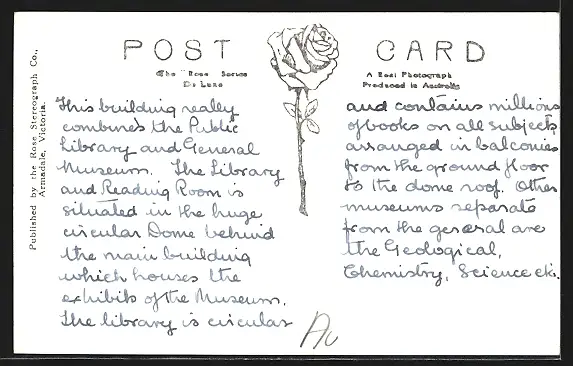 POST CARD
The "Rose" Series
De Luxe
A Real Photograph
Produced in Australia
Published by the Rose Stereograph Co.,
Armadale, Victoria.
This building really
combines the Public
Library and General
Museum. The Library
and Reading Room is
situated in the huge
circular Dome behind
the main building
which houses the
exhibits of the Museum.
The library is circular
and contains millions
of books on all subjects,
arranged in balconies
from the ground floor
to the dome roof. Other
museums separate
from the general are
the Geological,
Chemistry, Science etc.
Au